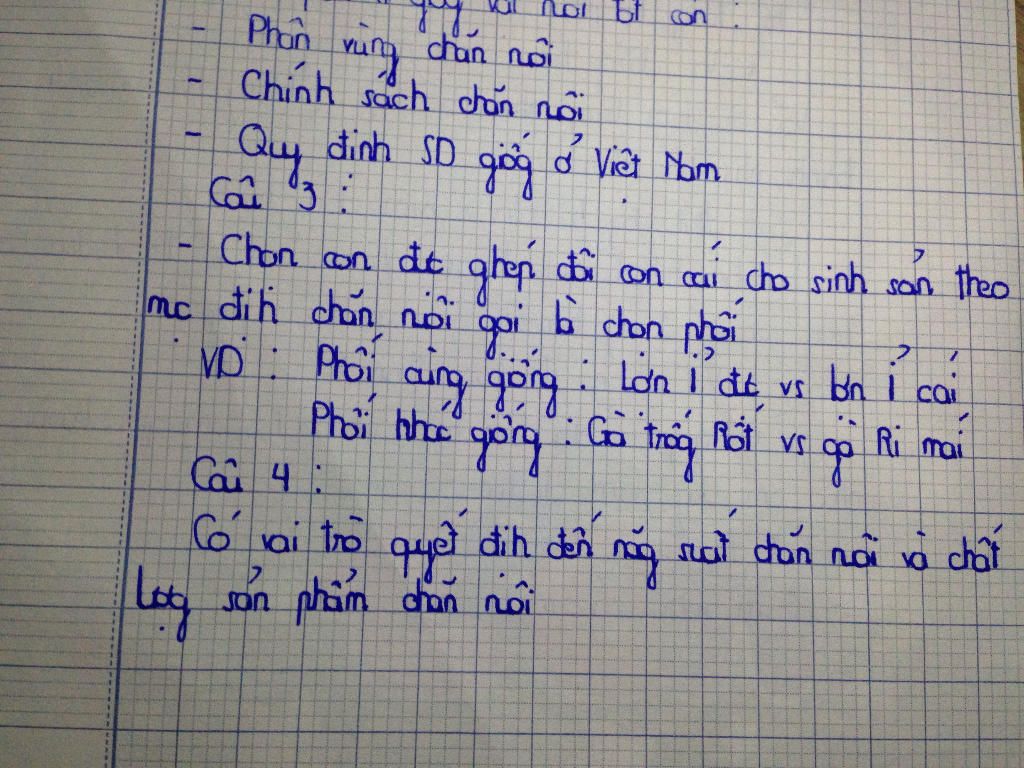 quy vài nơi bt còn :
- Phân vùng chăn nôi
- Chính sách chăn nôi
- Quy định SD giốg ở Việt Nam
Câu 3 :
- Chọn con đực ghép đôi con cái cho sinh sản theo
mc địh chăn nôi gọi là chọn phối
VD : Phối cùng giống : Lợn ỉ đực vs lợn ỉ cái
Phối khác giống : Gà trốg Rốt vs gà Ri mái
Câu 4 :
Có vai trò quyết địh đến năg suất chăn nôi và chất
lượg sản phẩm chăn nôi